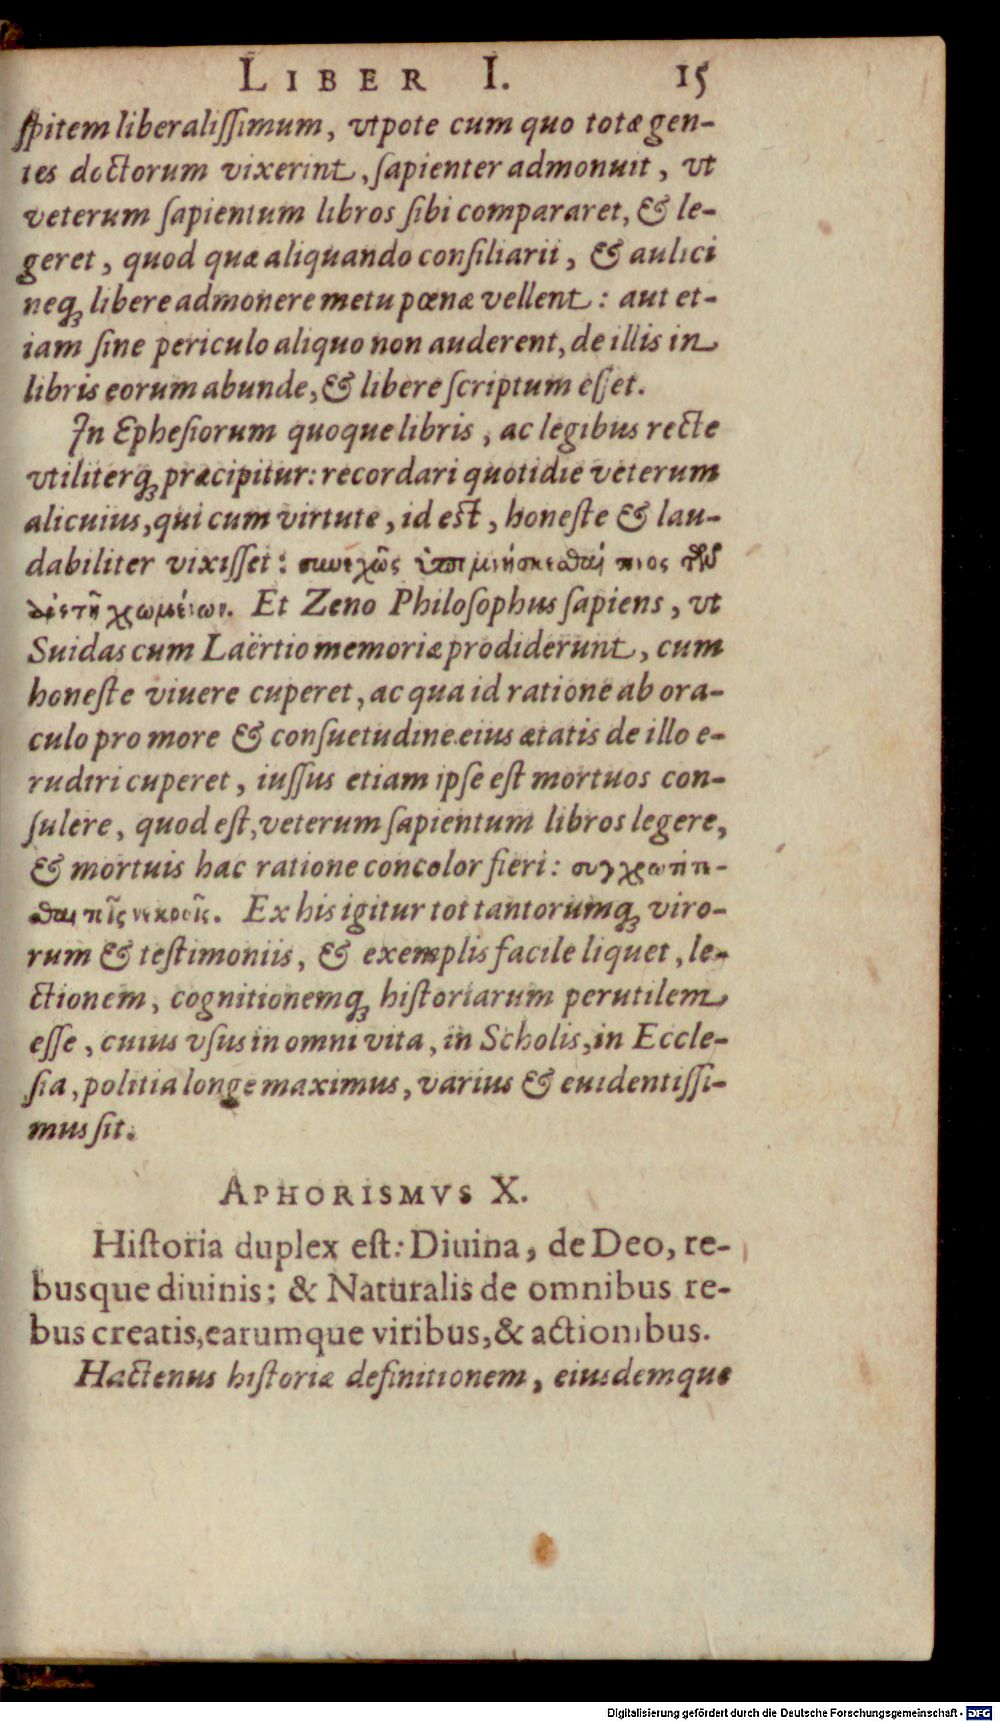 LIBER I. 15
ſpitem liberaliſſimum, vtpote cum quo totæ gen-
tes doctorum vixerint, ſapienter admonuit, vt
veterum ſapientum libros ſibi compararet, & le-
geret, quod quæ aliquando conſiliarii, & aulici
neq; libere admonere metu pœnæ vellent: aut et-
iam ſine periculo aliquo non auderent, de illis in
libris eorum abunde, & libere ſcriptum eſſet.
In Epheſiorum quoque libris, ac legibus recte
vtiliterq; præcipitur: recordari quotidie veterum
alicuius, qui cum virtute, id eſt, honeſte & lau-
dabiliter vixiſſet: συνεχῶς
Et Zeno Philoſophus ſapiens, vt
Suidas cum Laërtio memoriæ prodiderunt, cum
honeſte viuere cuperet, ac qua id ratione ab ora-
culo pro more & conſuetudine eius ætatis de illo e-
rudiri cuperet, iuſſus etiam ipſe eſt mortuos con-
ſulere, quod eſt, veterum ſapientum libros legere,
& mortuis hac ratione concolor fieri:
Ex his igitur tot tantorumq; viro-
rum & teſtimoniis, & exemplis facile liquet, le-
ctionem, cognitionemq; hiſtoriarum perutilem
eſſe, cuius vſus in omni vita, in Scholis, in Eccle-
ſia, politia longe maximus, varius & euidentiſſi-
mus ſit.
APHORISMVS X.
Hiſtoria duplex eſt: Diuina, de Deo, re-
busque diuinis; & Naturalis de omnibus re-
bus creatis, earumque viribus, & actionibus.
Hactenus hiſtoriæ definitionem, eiusdemque
Digitalisierung gefördert durch die Deutsche Forschungsgemeinschaft - DFG